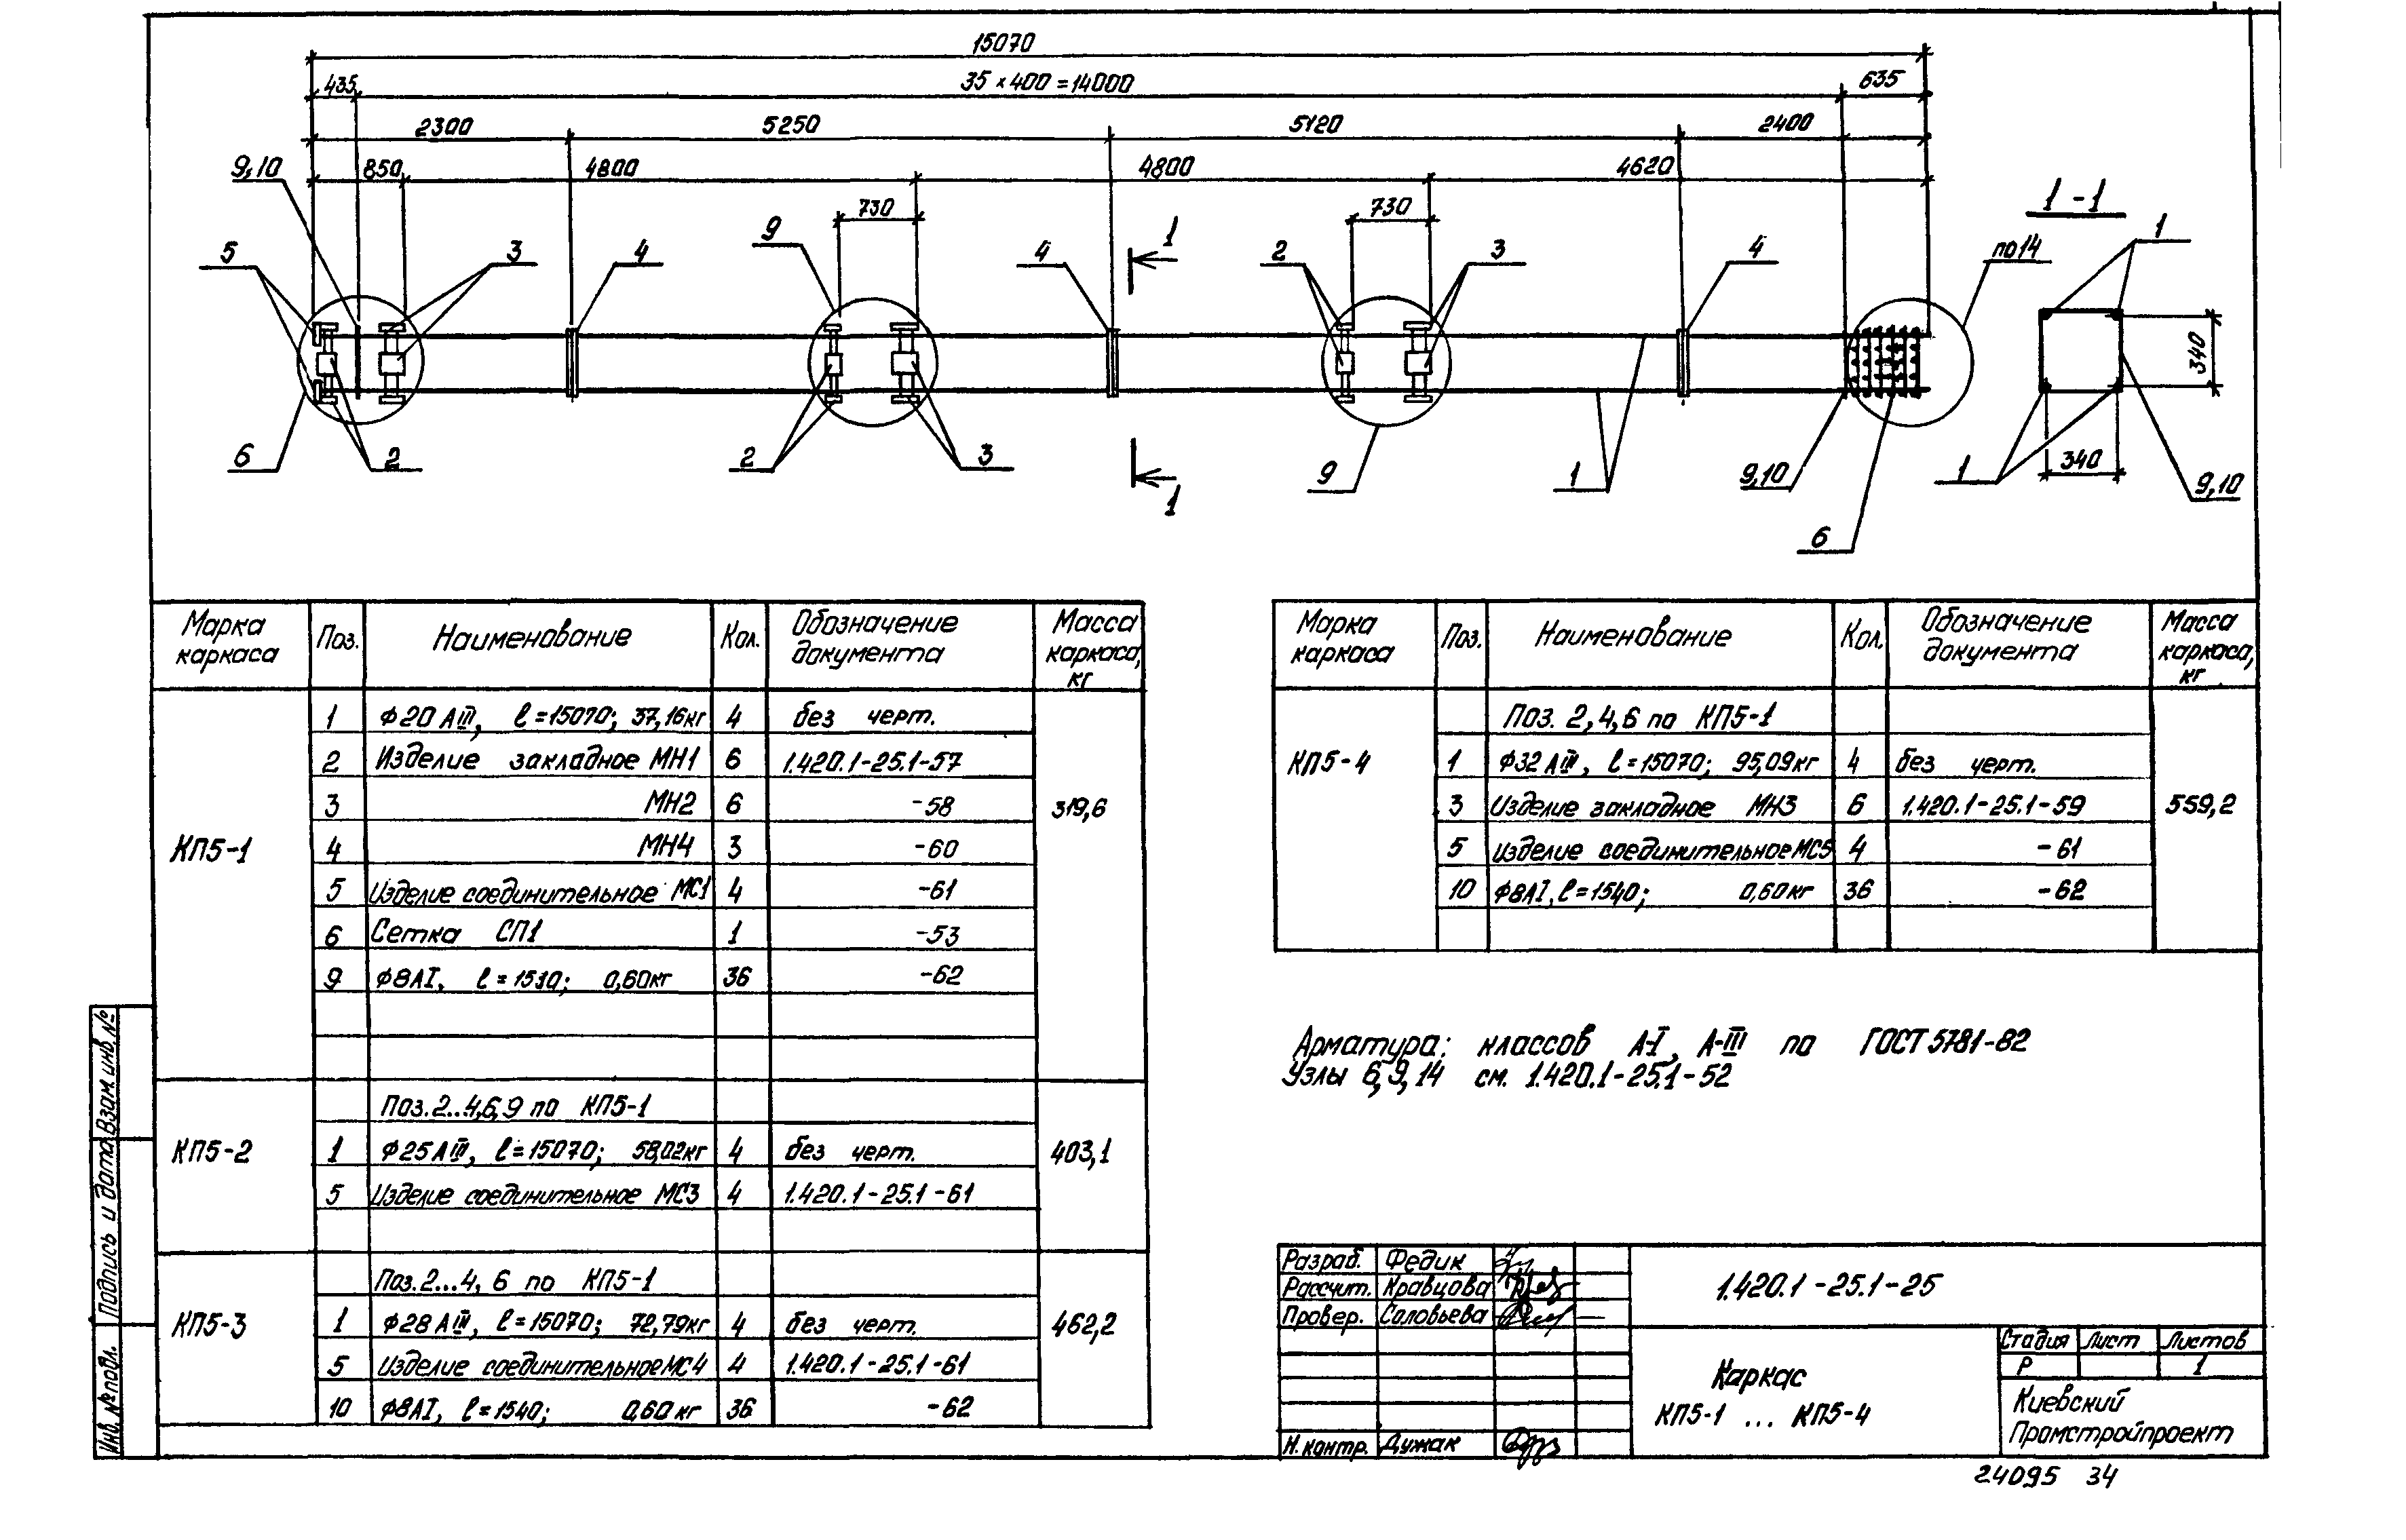 15070
435
35 × 400 = 14000
635
2300
5250
5120
2400
9,10
850
4800
4800
4620
730
730
1 - 1
5
3
4
9
4
1
2
3
4
по 14
1
340
6
2
2
3
1
9
1
9,10
6
1
340
9,10
Марка каркаса
Поз.
Наименование
Кол.
Обозначение документа
Масса каркаса, кг
КП5-1
319,6
1 Ф20АIII, ℓ=15070; 37,16кг 4 без черт.
2 Изделие закладное МН1 6 1.420.1-25.1-57
3 МН2 6 -58
4 МН4 3 -60
5 Изделие соединительное МС1 4 -61
6 Сетка СП1 1 -53
9 Ф8АI, ℓ=1530; 0,60кг 36 -62
КП5-2
403,1
Поз.2...4,6,9 по КП5-1
1 Ф25АIII, ℓ=15070; 58,02кг 4 без черт.
5 Изделие соединительное МС3 4 1.420.1-25.1-61
КП5-3
462,2
Поз.2...4, 6 по КП5-1
1 Ф28АIII, ℓ=15070; 72,79кг 4 без черт.
5 Изделие соединительное МС4 4 1.420.1-25.1-61
10 Ф8АI, ℓ=1540; 0,60кг 36 -62
Марка каркаса
Поз.
Наименование
Кол.
Обозначение документа
Масса каркаса, кг
КП5-4
559,2
Поз. 2,4,6 по КП5-1
1 Ф32АIII, ℓ=15070; 95,09кг 4 без черт.
3 Изделие закладное МН3 6 1.420.1-25.1-59
5 Изделие соединительное МС5 4 -61
10 Ф8АI, ℓ=1540; 0,60кг 36 -62
Арматура: классов А-I, А-III по ГОСТ 5781-82
Узлы 6, 9, 14 см. 1.420.1-25.1-52
Взам. инв. №
Подпись и дата
Инв. № подл.
Разраб. Федик
Рассчит. Кравцова
Провер. Соловьева
Н. контр. Дужак
1.420.1-25.1-25
Каркас
КП5-1 ... КП5-4
Стадия Лист Листов
Р 1
Киевский
Промстройпроект
24095 34